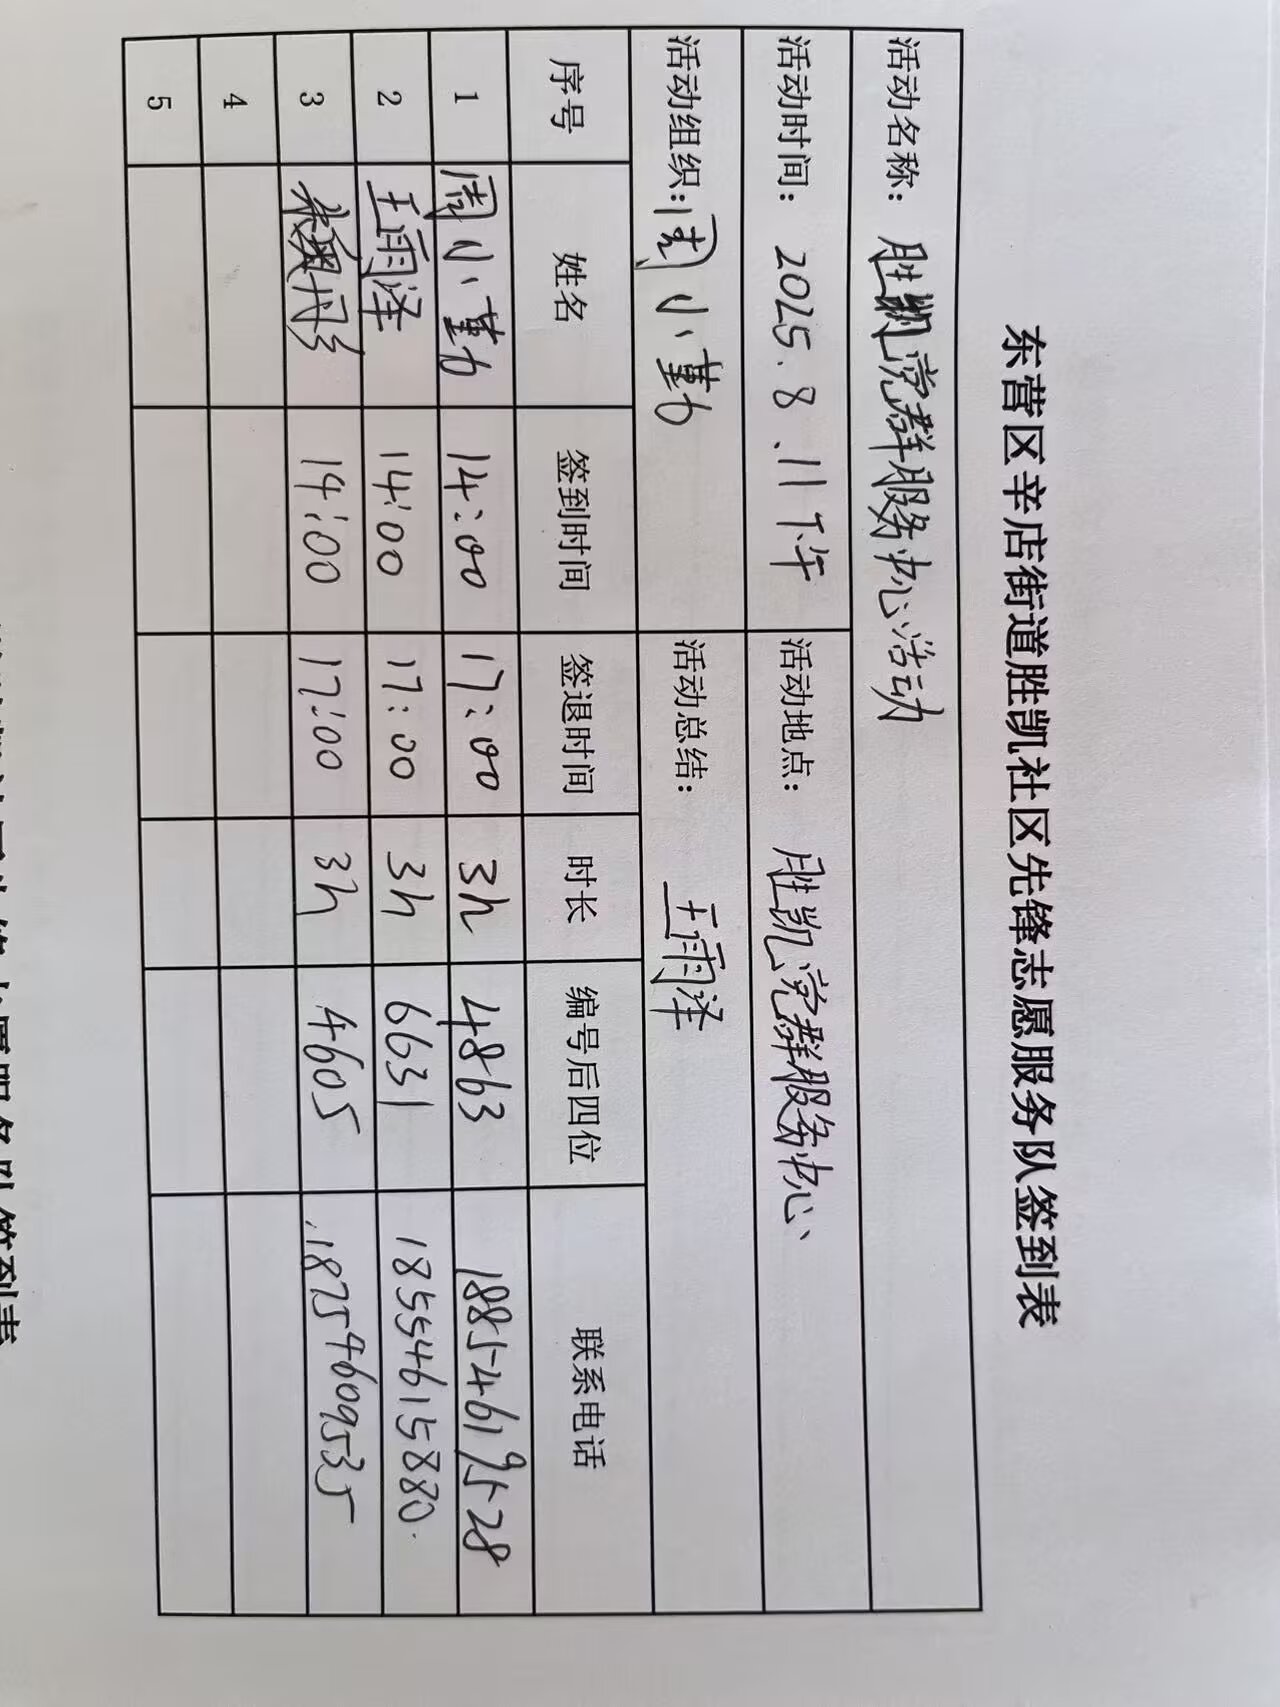 东营区辛店街道胜凯社区先锋志愿服务队签到表
活动名称： 胜凯党群服务中心活动
活动时间： 2025.8.11下午 活动地点： 胜凯党群服务中心
活动组织：周小勤 活动总结： 王雨泽
序号 姓名 签到时间 签退时间 时长 编号后四位 联系电话
1 周小勤 14:00 17:00 3h 4863 18854619528
2 王雨泽 14:00 17:00 3h 6631 18554615880.
3 14:00 17:00 3h 4605 18754609535
4
5